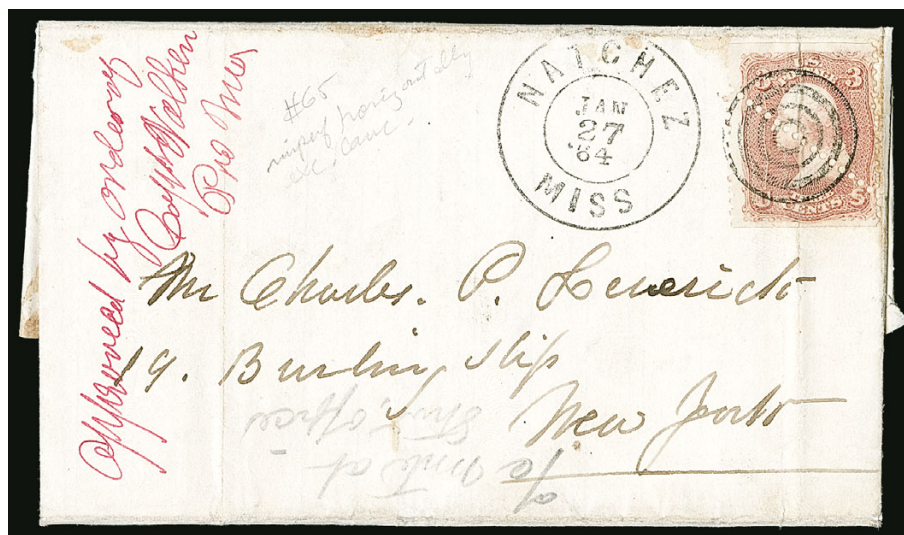 approved by order of
Capt Walker
Pro Mar
#65
imperf horizontally
exc. canc -
NATCHEZ
JAN
27
'64
MISS
3 3
CENTS
Mr Charles. P. Leverich
19. Burling Slip
New York
office